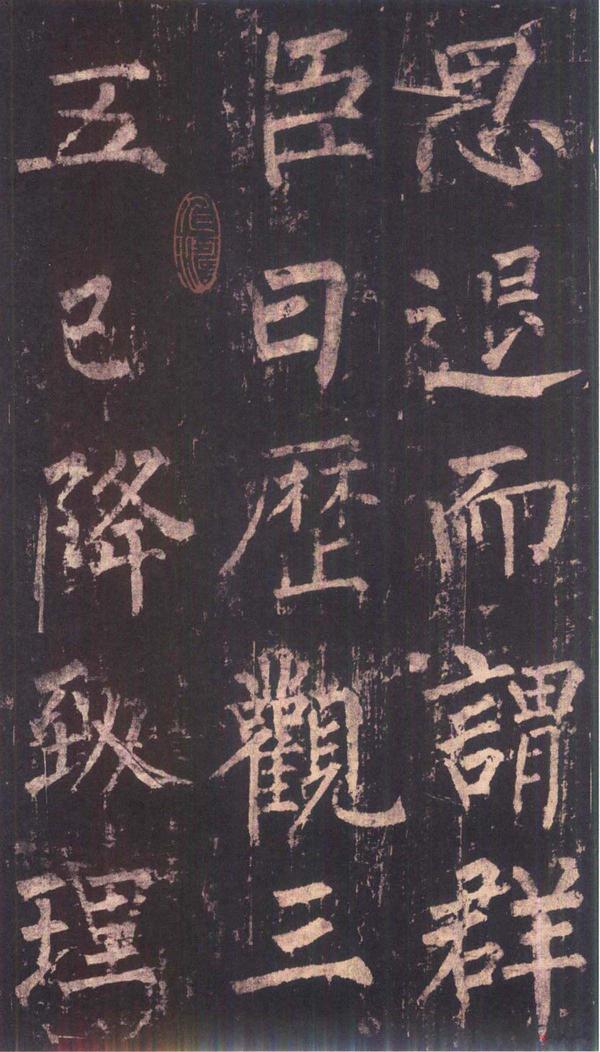 思退而謂群
臣曰歷觀三
五已降致理